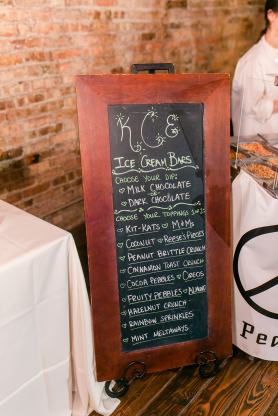 K & E
ICE CREAM BARS
CHOOSE YOUR DIP:
♡ MILK CHOCOLATE
OR
♡ DARK CHOCOLATE
CHOOSE YOUR TOPPINGS
♡ KIT-KATS ♡ M&MS
♡ COCONUT ♡ REESE'S PIECES
♡ PEANUT BRITTLE CRUNCH
♡ CINNAMON TOAST CRUNCH
♡ COCOA PEBBLES ♡ OREOS
♡ FRUITY PEBBLES ♡ ALMOND
♡ HAZELNUT CRUNCH
♡ RAINBOW SPRINKLES
♡ MINT MELTAWAYS
Pe